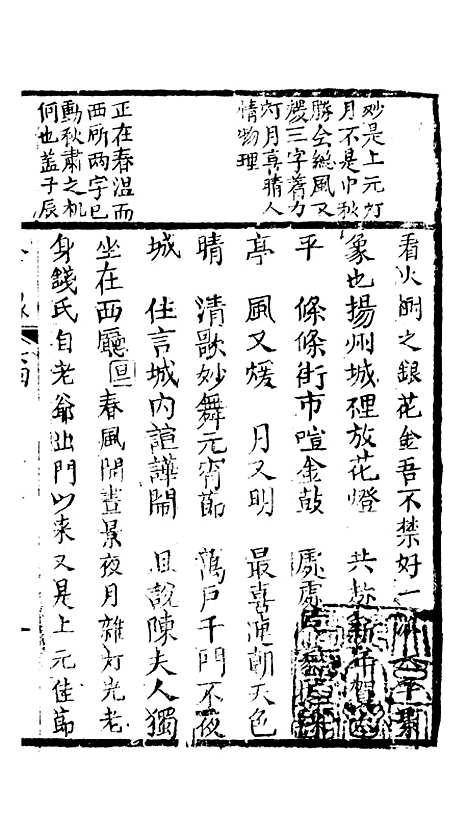 妙是上元灯
月不是中秋
勝会縂風又
煖三字著力
灯月真晴人
情物理
正在春温而
西所两字已
動秋肅之机
何也盖子辰
看火樹之銀花金吾不禁好一
象也揚州城裡放花燈 共
平 條條街市喧金鼓 處處
亭 風又煖 月又明 最喜連朝天色
晴 清歌妙舞元宵節 萬戶千門不夜
城 住言城内諠譁鬧 且說陳夫人獨
坐在西廳 囯 春風開晝景夜月雜灯光老
身錢氏自老爺出門以来又是上元佳節